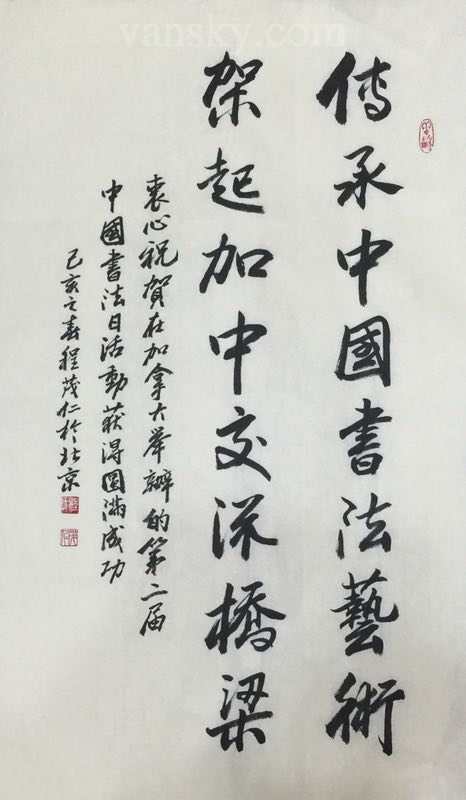 vansky.com
傳承中國書法藝術
架起加中交流橋梁
衷心祝賀在加拿大舉辦的第二届
中國書法日活動获得圆滿成功
己亥之春程茂仁於北京